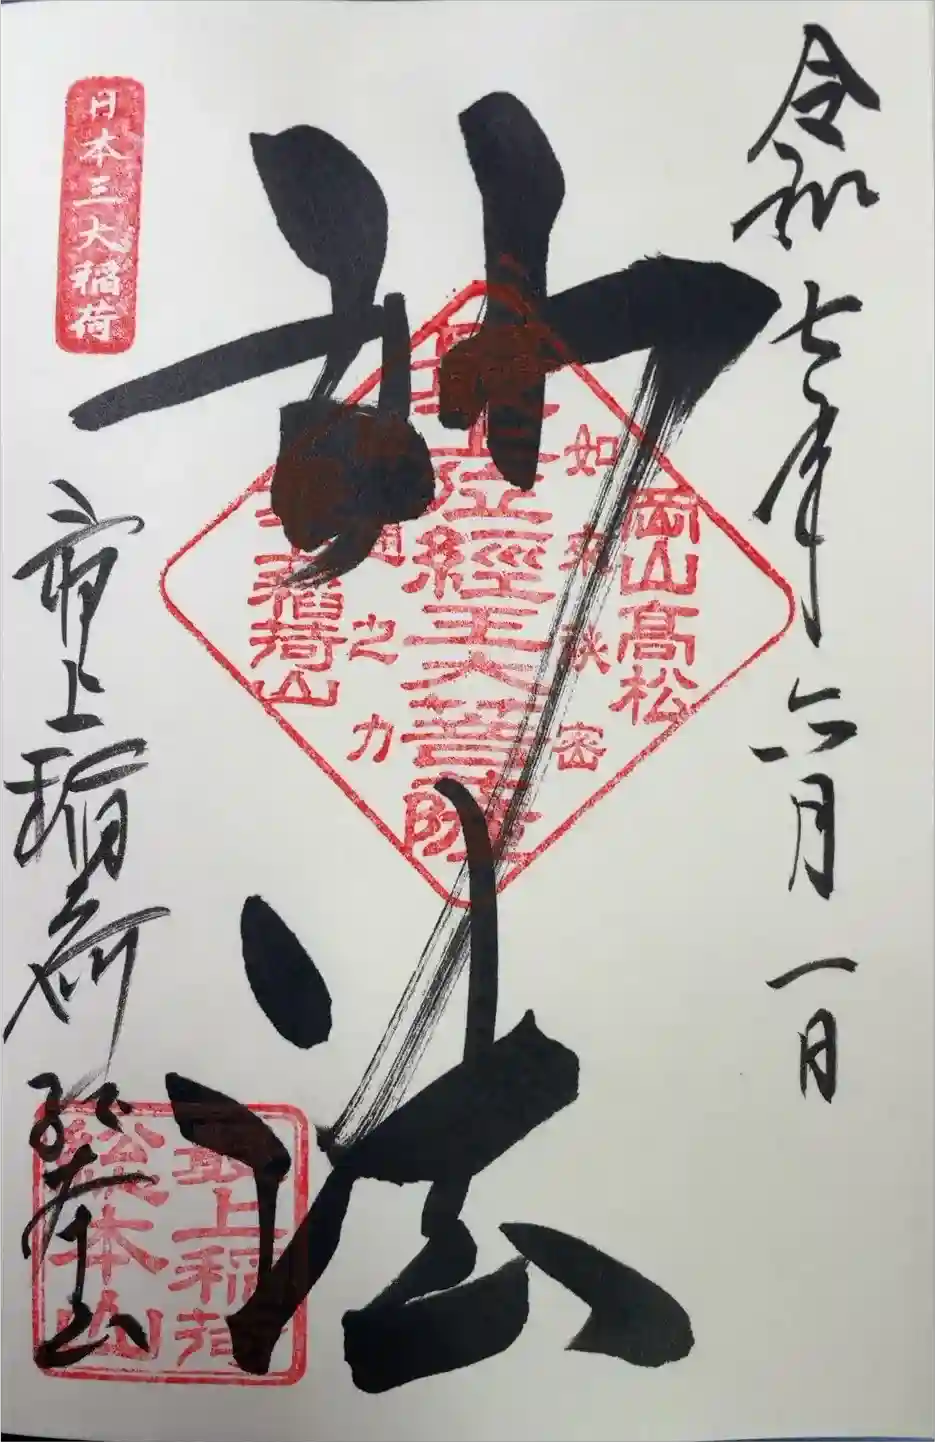 令和七年六月一日
妙法
岡山髙松
如来秘密
最上位經王大菩薩
神通之力
最上稲荷山
日本三大稲荷
最上稲荷総本山
最上稲荷
総本山